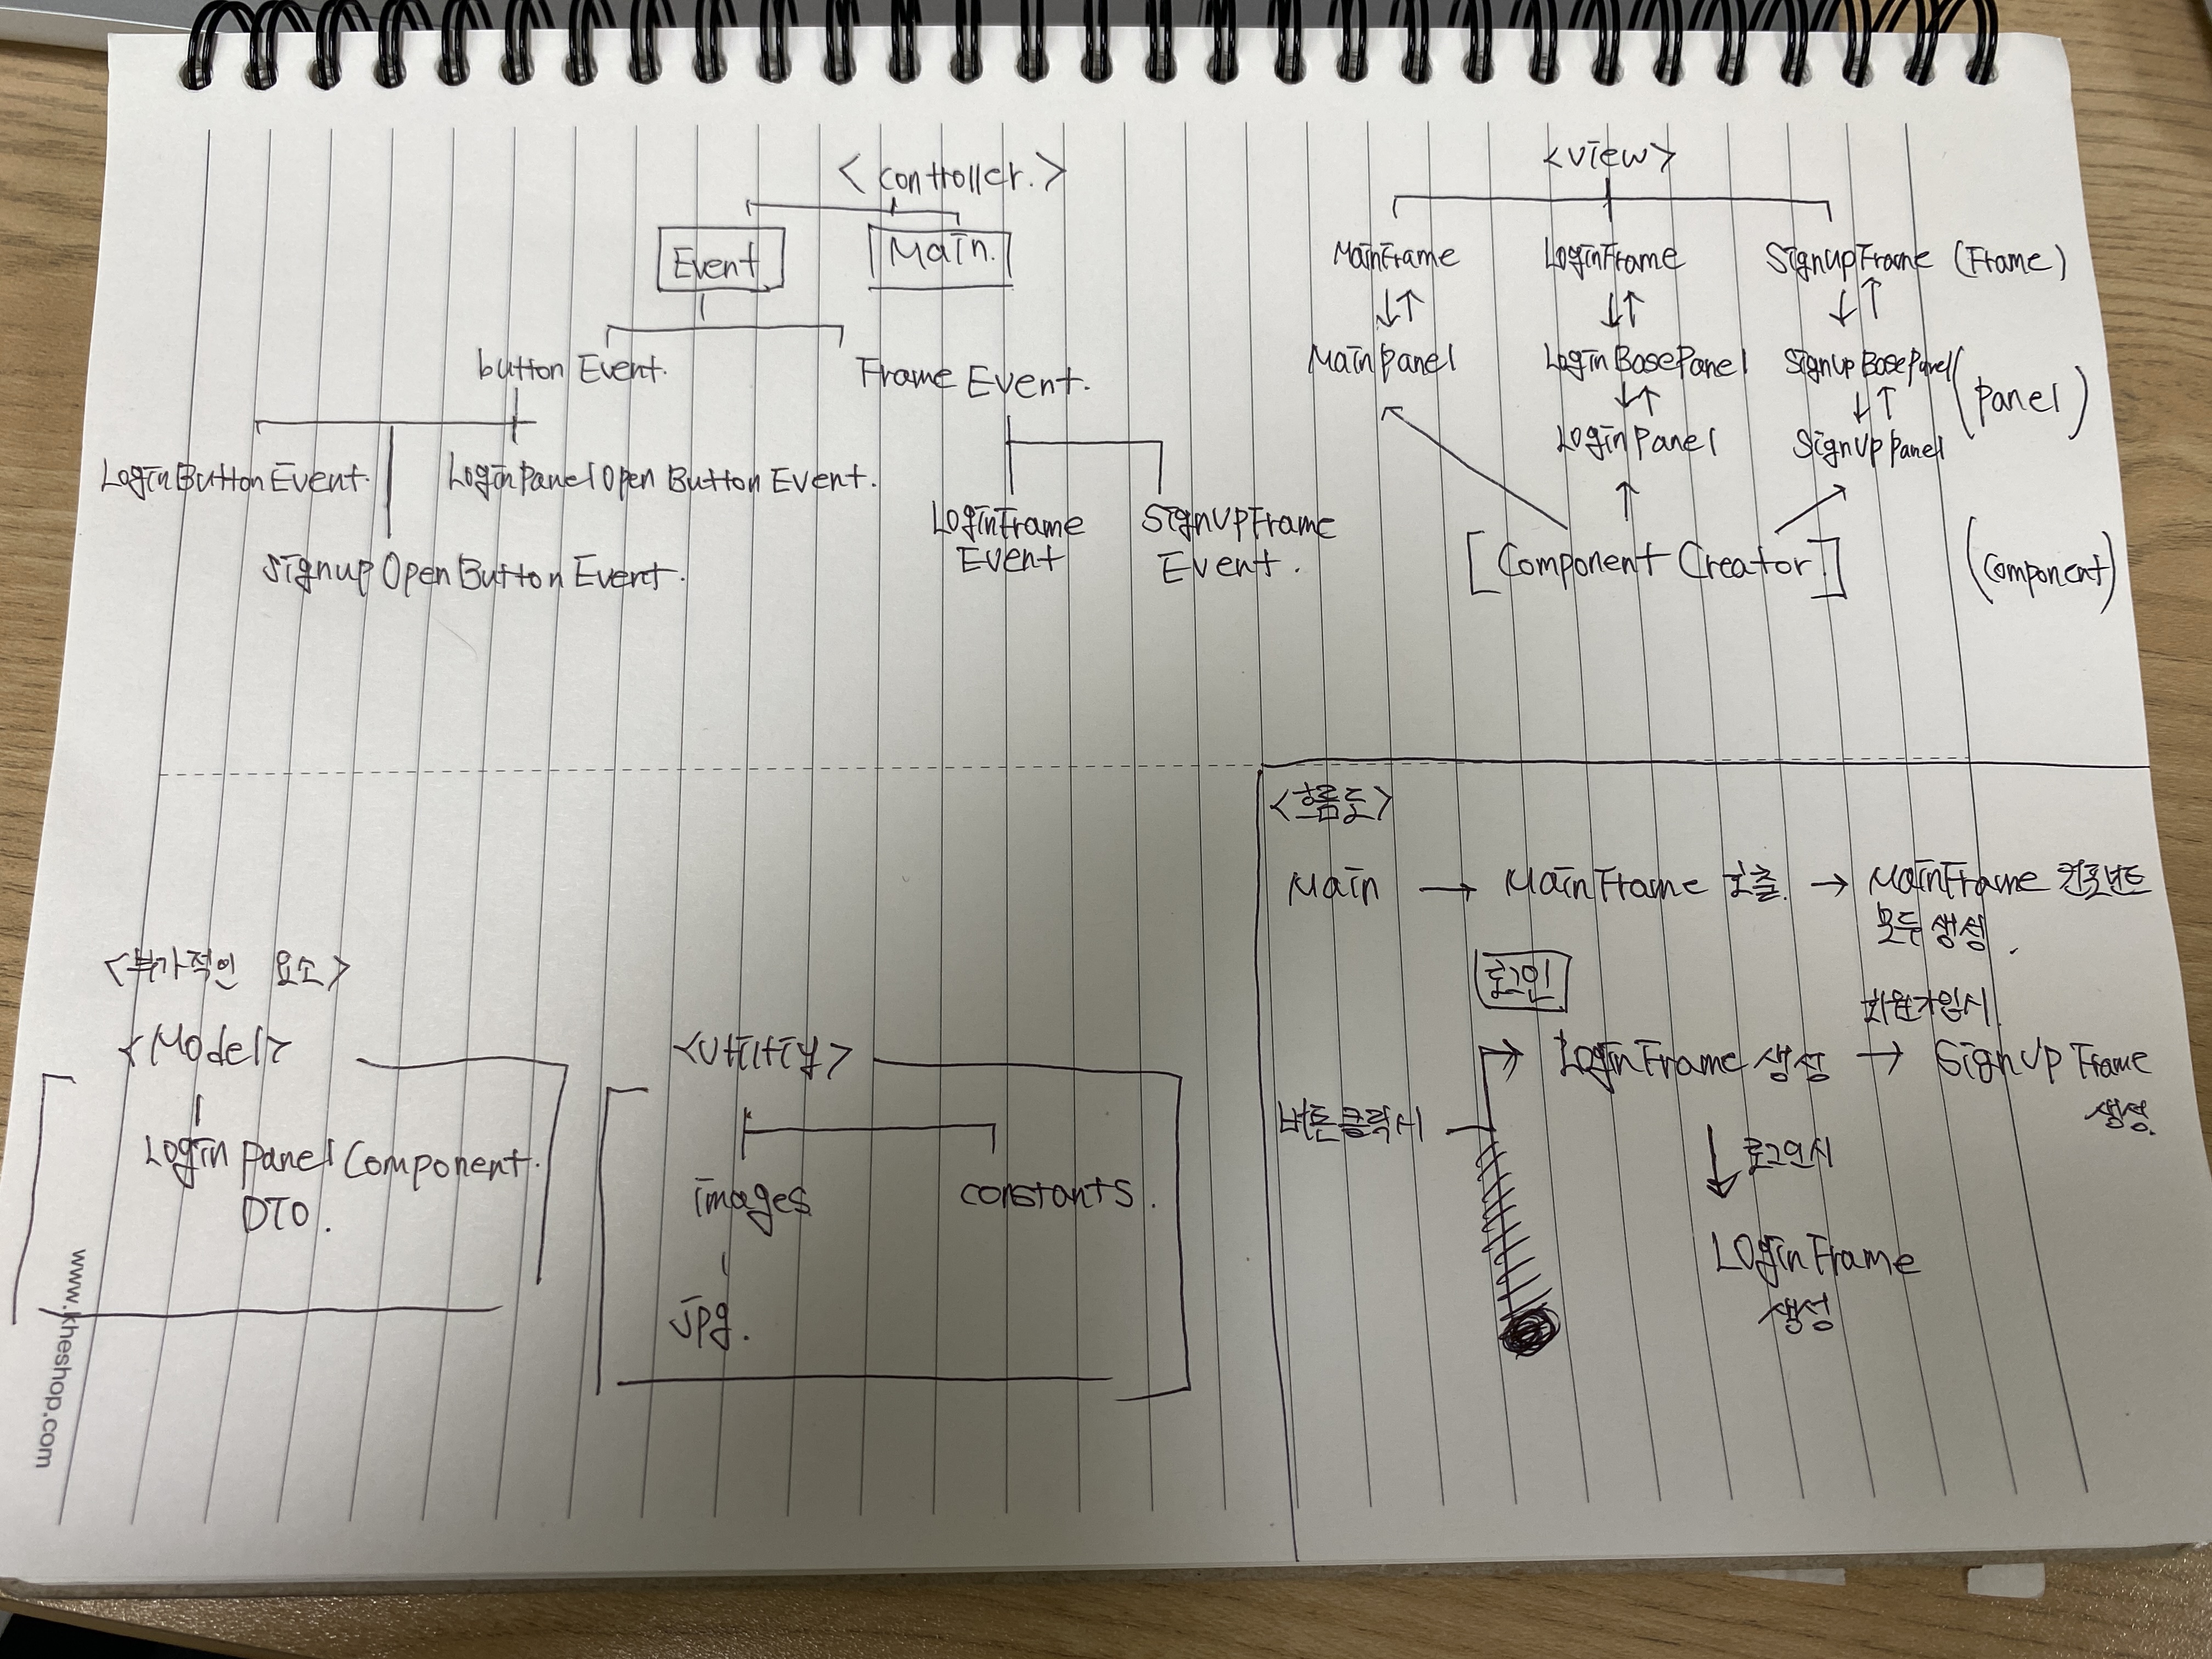 <controller.>
Event
Main.
button Event.
Frame Event.
LoginButtonEvent.
LoginPanelOpen Button Event.
SignupOpenButtonEvent.
LoginFrame
Event
SignUpFrame
Event.
<view>
MainFrame
LoginFrame
SignupFrame (Frame)
MainPanel
LoginBasePanel
SignupBasePanel
(Panel)
LoginPanel
SignUpPanel
[Component Creator.]
(Component)
<부가적인 요소>
<Model>
Login Panel Component.
DTO.
<Utility>
images
constants.
jpg.
<흐름도>
Main → MainFrame 호출. → MainFrame 컴포넌트
모두 생성.
로그인
회원가입시.
버튼클릭시
LoginFrame 생성 → SignUp Frame
생성.
로그인시
LoginFrame
생성
www.kheshop.com